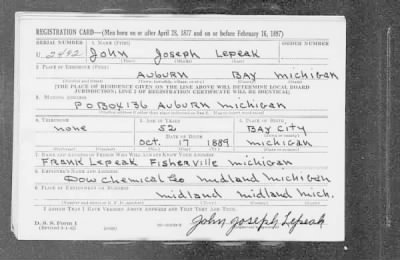 REGISTRATION CARD—(Men born on or after April 28, 1877 and on or before February 16, 1897)
SERIAL NUMBER 1. NAME (Print) ORDER NUMBER
U 2492 John Joseph Lepeak
(First) (Middle) (Last)
2. PLACE OF RESIDENCE (Print)
Auburn Bay Michigan
(Number and street) (Town, township, village, or city) (County) (State)
[THE PLACE OF RESIDENCE GIVEN ON THE LINE ABOVE WILL DETERMINE LOCAL BOARD
JURISDICTION; LINE 2 OF REGISTRATION CERTIFICATE WILL BE IDENTICAL]
3. MAILING ADDRESS
P O Box 136 Auburn Michigan
4. TELEPHONE 5. AGE IN YEARS 6. PLACE OF BIRTH
none 52 Bay City
DATE OF BIRTH
Oct. 17 1889 Michigan
7. NAME AND ADDRESS OF PERSON WHO WILL ALWAYS KNOW YOUR ADDRESS
Frank Lepeak Fisherville Michigan
8. EMPLOYER'S NAME AND ADDRESS
Dow Chemical Co Midland Michigan
9. PLACE OF EMPLOYMENT OR BUSINESS
Midland Midland Mich.
I AFFIRM THAT I HAVE VERIFIED ABOVE ANSWERS AND THAT THEY ARE TRUE.
D. S. S. Form 1
John Joseph Lepeak